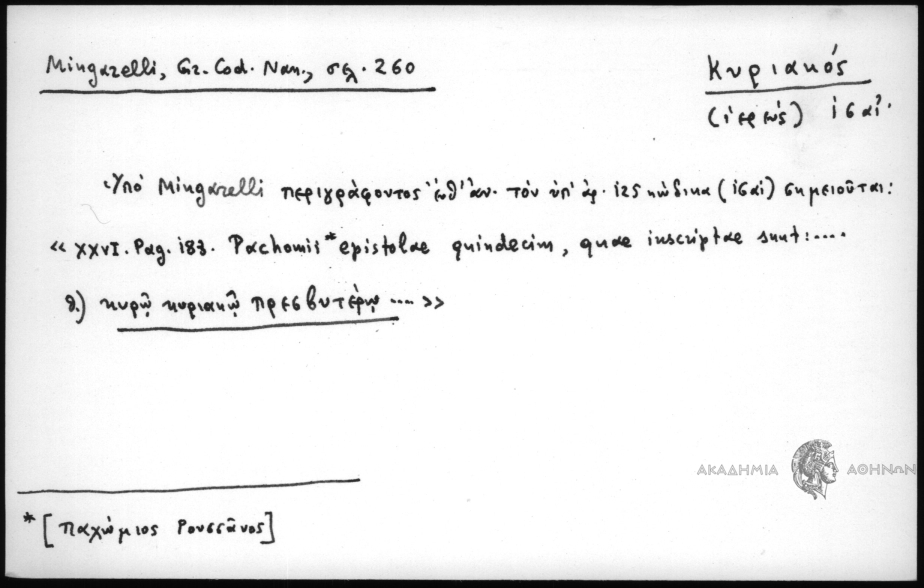 Mingarelli, Gr. Cod. Nan., σελ. 260
Κυριακός
(ἱερεὺς) ις αἰ.
Ὑπό Mingarelli περιγράφοντος τόν ὑπ' ἀρ. 125 κώδικα (ις αἰ) σημειοῦται:
« XXVI. Pag. 187. Pachomii * epistolae quindecim, quae inscriptae sunt:....
θ.) κυρῷ κυριακῷ πρεσβυτέρῳ .... »
ΑΚΑΔΗΜΙΑ ΑΘΗΝΩΝ
* [Παχώμιος Ρουσσᾶνος]